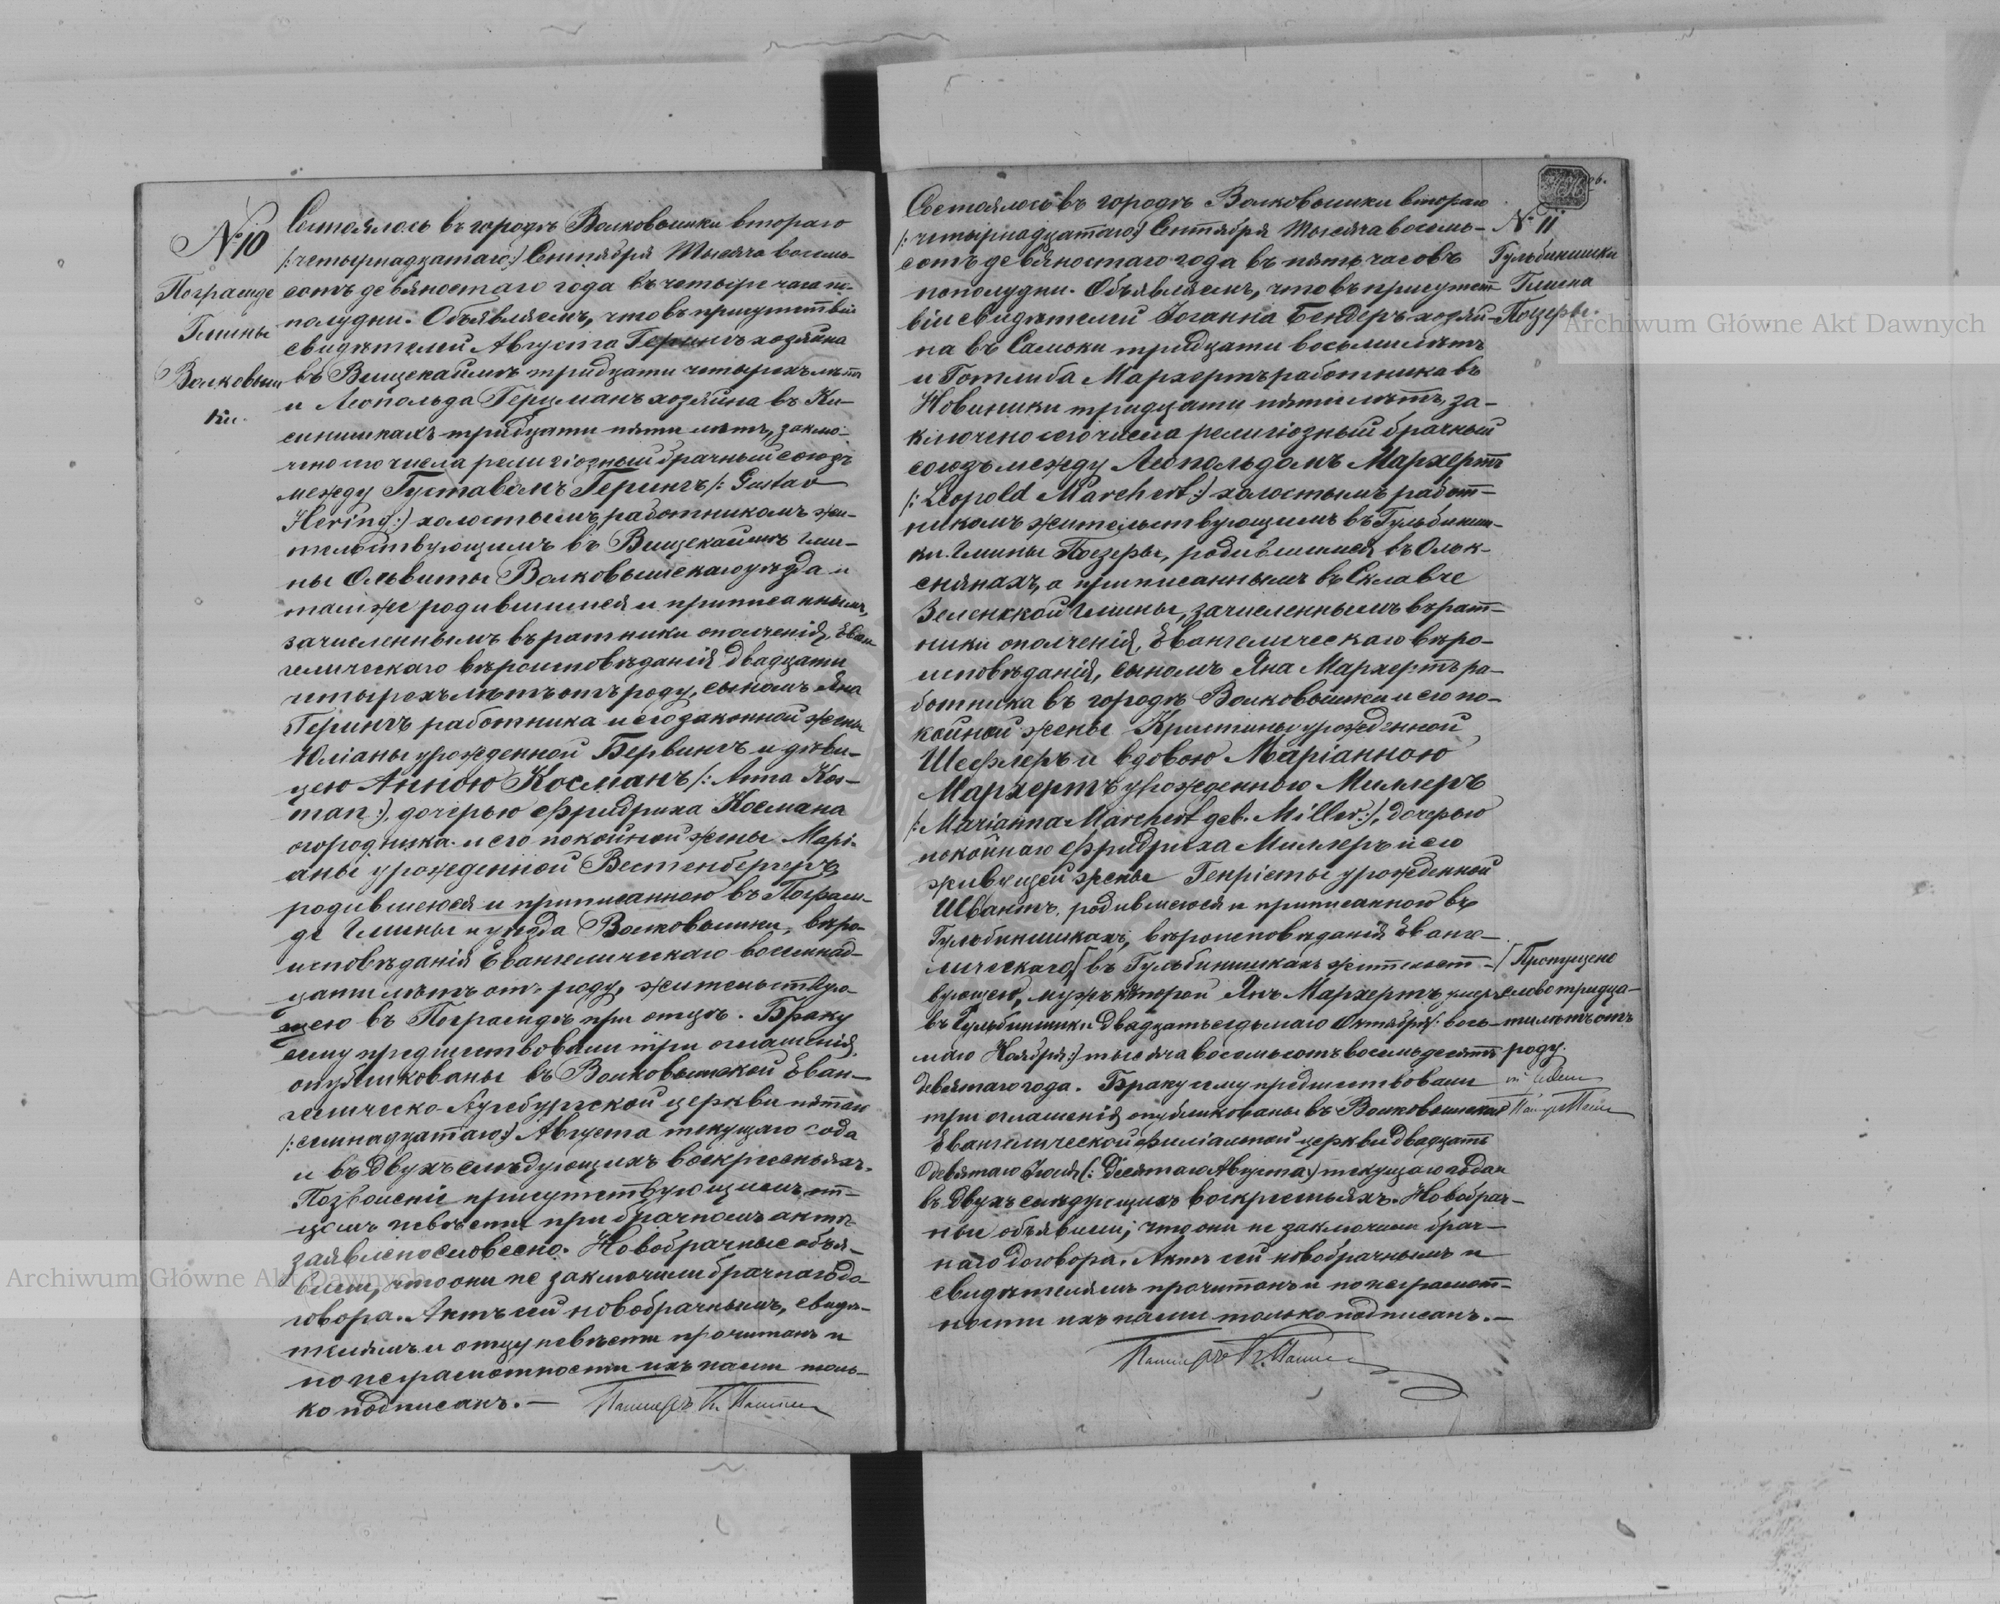 № 10
Пограмде
Гмины
Волковыш
ки.
Состоялось въ городѣ Волковышки втораго
/:четырнадцатаго:/ Сентября тысяча восемь-
сотъ девяностаго года въ четыре часа по-
полудни. Объявляемъ, что въ присутствіи
свидѣтелей Августа Герингъ хозяина
въ Вищекаймѣ тридцати четырехъ лѣтъ
и Леопольда Герцманъ хозяина въ Ки-
синишкахъ тридцати пяти лѣтъ, заклю-
чено сего числа религіозный брачный союзъ
между Густавомъ Герингъ /: Gustav
Hering:/ холостымъ, работникомъ жи-
тельствующимъ въ Вищекаймѣ гми-
ны Ольвиты Волковышскаго уѣзда и
тамже родившимся и приписаннымъ,
зачисленнымъ въ ратники ополченія, Еван
гелическаго вѣроисповѣданія двадцати
четырехъ лѣтъ отъ роду, сыномъ Яна
Герингъ работника и его законной жены
Юліаны урожденной Бервингъ и дѣви-
цею Анною Косманъ /: Anna Kos-
man:/, дочерью Фридриха Космана
огородника и его покойной жены Марі-
аны урожденной Вестенбергеръ,
родившеюся и приписанною въ Пограм-
де Гмины и уѣзда Волковышки, вѣро-
исповѣданія Евангелическаго восемнад-
цати лѣтъ отъ роду, жительствую-
щею въ Пограмдѣ при отцѣ. Браку
сему предшествовали три оглашенія,
опубликованы въ Волковышской Еван-
гелическо-Аугсбургской церкви пятаго
/:семнадцатаго:/ Августа текущаго года
и въ двухъ слѣдующихъ воскресеньяхъ.
Позволеніе присутствующимъ от-
цомъ невѣсты при брачномъ актѣ
заявлено словесно. Новобрачные объя-
вили, что они не заключили брачнаго до-
говора. Актъ сей новобрачнымъ, свидѣ-
телямъ и отцу невѣсты прочитанъ и
по неграмотности ихъ нами толь-
ко подписанъ.—
№ 11
Гульбинишки
Гмина
Поезеры.
Состоялось въ городѣ Волковышки втораго
/: четырнадцатаго:/ Сентября тысяча восемь-
сотъ девяностаго года въ пять часовъ
пополудни. Объявляемъ, что въ присутст-
віи свидѣтелей Іоганна Бендеръ хозяи-
на въ Самоки тридцати восьми лѣтъ
и Готлиба Мархертъ работника въ
Новиники тридцати пяти лѣтъ, за-
ключено сего числа религіозный брачный
союзъ между Леопольдомъ Мархертъ
/: Leopold Marchert:/ холостымъ работ-
никомъ жительствующимъ въ Гульбиниш-
ки Гмины Поезеры, родившимся въ Олок-
снянахъ, а приписаннымъ въ Склавче
Зеленкской гмины, зачисленнымъ въ рат-
ники ополченія, Евангелическаго вѣро-
исповѣданія, сыномъ Яна Мархертъ ра-
ботника въ городѣ Волковышки и его по-
койной жены Кристины урожденной
Шефлеръ и вдовою Маріанною
Мархертъ урожденною Миллеръ
/: Marianna Marchert geb. Miller:/, дочерью
покойнаго Фридриха Миллеръ и его
живущей жены Генріеты урожденной
Швантъ, родившеюся и приписанною въ
Гульбинишкахъ, вѣроисповѣданія Еванге-
лическаго, въ Гульбинишкахъ жительст-
вующею, мужъ которой Янъ Мархертъ умеръ
въ Гульбинишки двадцать седьмаго Октября /: вось-
маго Ноября:/ тысяча восемьсотъ восемьдесятъ
девятаго года. Браку сему предшествовали
три оглашенія опубликованы въ Волковышской
Евангелической филіальной церкви двадцать
девятаго Іюля /: Десятаго Августа:/ текущаго года и
въ двухъ слѣдующихъ воскресеньяхъ. Новобрач-
ные объявили, что они не заключили брач-
наго договора. Актъ сей новобрачнымъ и
свидѣтелямъ прочитанъ и по неграмот-
ности ихъ нами только подписанъ.—
/ Пропущено
слово тридца-
ти лѣтъ отъ
роду.
Archiwum Główne Akt Dawnych
Archiwum Główne Akt Dawnych